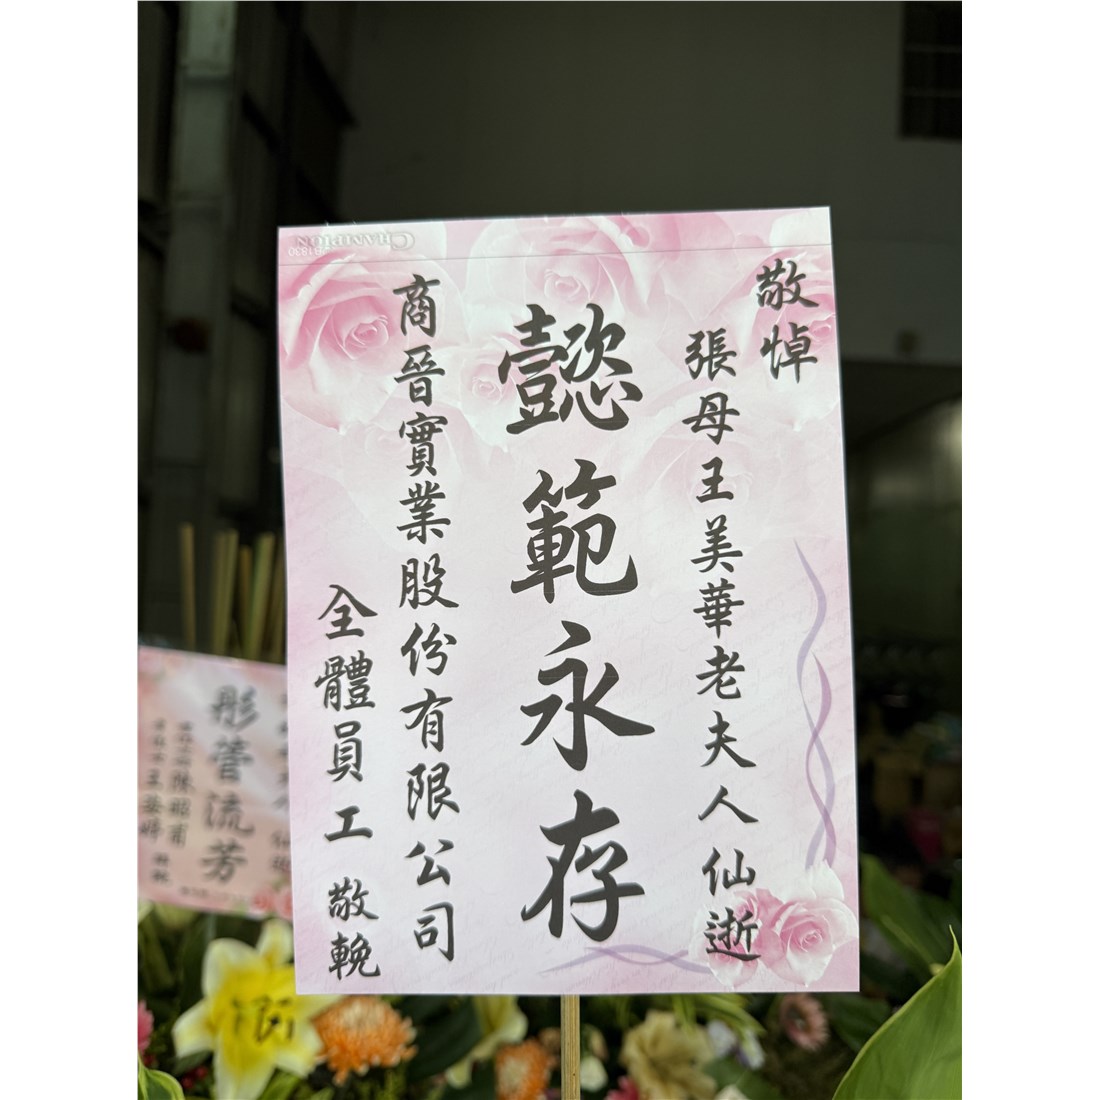 敬悼
張母王美華老夫人仙逝
懿範永存
商晉實業股份有限公司
全體員工 敬輓
CHAMPION
彤管流芳